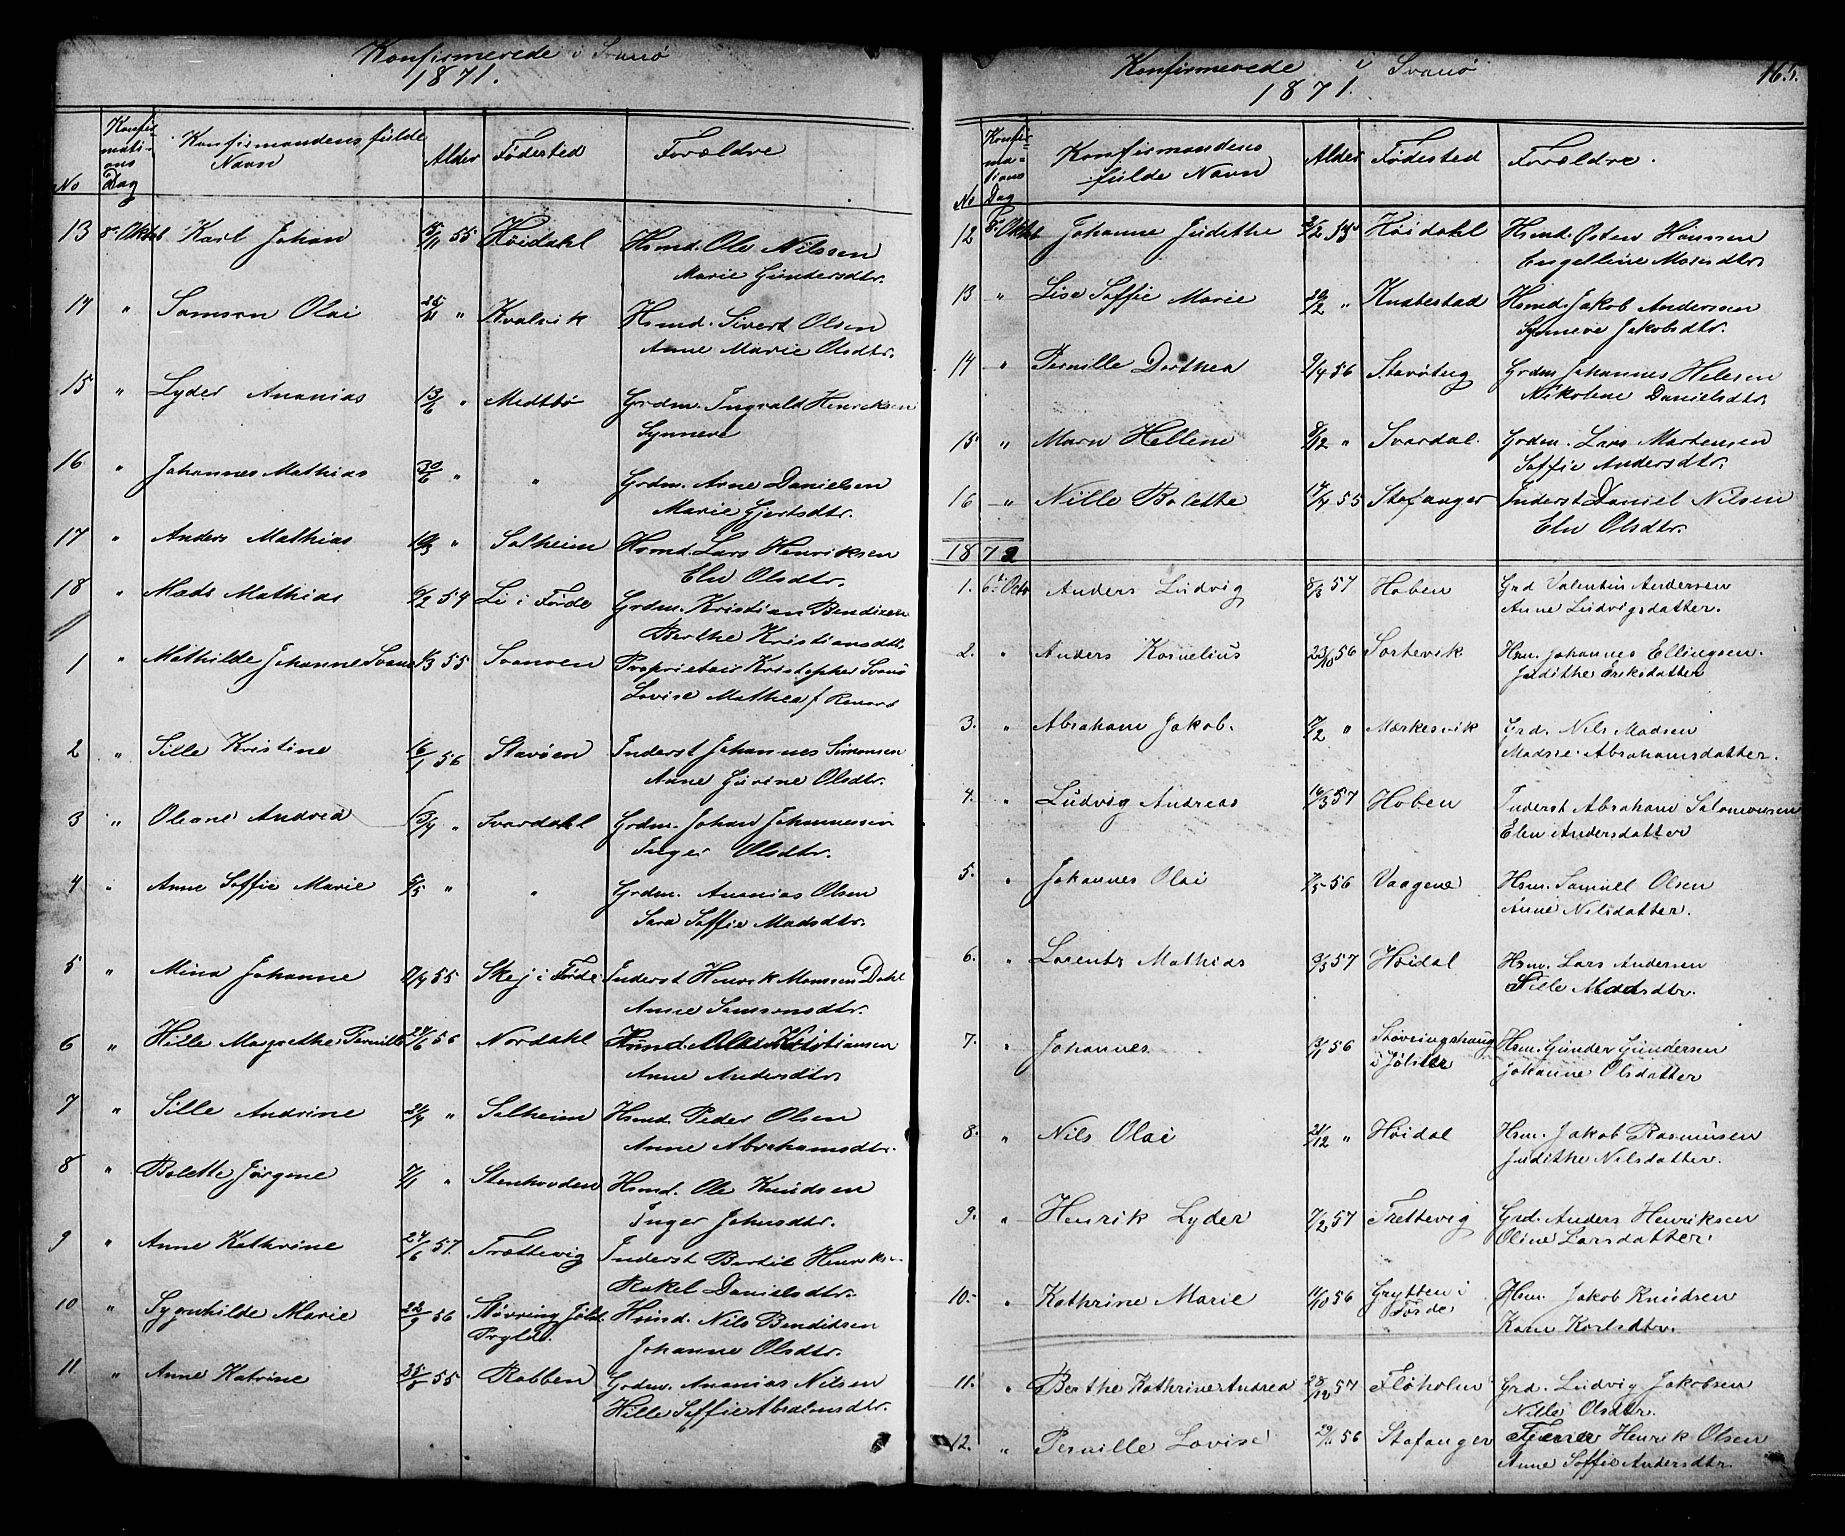 Konfirmerede i Svanø
1871.
No
Konfir-
mati-
ons
Dag
Konfirmandens fulde
Navn
Alder
Fødested
Forældre
13 8de Oktob Karl Johan 15/11 55 Høidahl Hsmd. Ole Nilssen
Marie Gundersdtr.
14 " Samson Olai " Kvalvik Hsmd. Sivert Olsen
Anne Marie Olsdtr.
15 " Lyder Ananias 13/6 " Medtbø Grdm. Ingvald Henriksen
Synneve
16 " Johannes Mathias 30/6 " " Grdm. Arne Danielsen
Marie Gjertsdtr.
17 " Anders Mathias 10/3 " Solheim Hsmd. Lars Henriksen
Elen Olsdtr.
18 " Mads Mathias 6/2 54 Li i Førde Grdm. Kristian Bendixen
Berthe Kristiansdtr
1 " Mathilde Johanne Svanø 1/3 55 Svanøen Proprietair Kristopher Svanø
Lovise Mathea f.
2 " Sille Kristine 16/1 56 Stavøen Inderst Johannes Simonsen
Anne Gurine Olsdtr.
3 " Oleane Andrea 15/4 " Svardahl Grdm. Johan Johannessen
Inger Olsdtr.
4 " Anne Soffie Marie 5/5 " " Grdm. Ananias Olsen
Sara Soffie Madsdtr.
5 " Mina Johanne 17/4 55 Skej i Førde Inderst Henrik Monssen Dahl
Anne Samsonsdtr.
6 " Hille Margrethe Pernille 24/6 56 Nordahl Hsmd. Kristiansen
Anne Andersdtr
7 " Sille Andrine 21/4 " Solheim Hsmd. Peder Olsen
Anne Abrahamsdtr.
8 " Bolette Jørgine 7/1 " Stenhovden Hsmd. Ole Knudsen
Inger Johnsdtr.
9 " Anne Kathrine 24/6 57. Trættevig Inderst Bertil Henriks-
Rakel Danielsdtr.
10 " Sygnhilde Marie 22/9 56 Støvring Jølst. Hsmd. Nils Bendiksen
Prgld. Johanne Olsdtr.
11 " Anne Katrine 25/5 55 Robben Grdm. Ananias Nilsen
Hille Soffie Absalonsdtr.
Konfirmerede i Svanø
1871.
165.
No
Konfir-
ma-
tions
Dag
Konfirmandens
fulde Navn
Alder
Fødested
Forældre.
12 8de Oktob Johanne Judithe 55 Høidahl Hsmd. Østen Hanssen
Engelline Monsdtr.
13 " Lise Soffie Marie 20/2 " Knabestad Hsmd. Jakob Anderssen
Synneve Jakobsdtr.
14 " Pernille Dorthea 9/4 56 Stavøtug Grdm Johannes Helesen
Nikoline Danielsdtr.
15 " Marn Helline 8/12 " Svardal. Grdm. Lars Martensen
Soffie Andersdtr.
16 " Nille Bolethe 55 Stafanger Inderst Daniel Nilsen
Eln Olsdtr.
1872
1. 6te Octo Anders Ludvig 8/3 57 Hoben Grd Valentin Andersen
Anne Ludvigsdatter.
2. " Anders Kornelius 23/10 56 Sortevik Hsm. Johannes Ellingsen.
Judithe Eriksdatter
3. " Abraham Jakob. 7/2 " Mærkesvik Grd. Nils Madsen
Madsie Abrahamsdatter.
4. " Ludvig Andreas 16/3 57 Hoben Inderst Abraham Salomonsen
Elen Andersdatter
5. " Johannes Olai 7/5 56 Vaagene Hsm. Samuel Olsen
Anne Nilsdatter.
6. " Lorents Mathias 9/3 57 Høidal Hsm. Lars Andersen
Sille Madsdtr.
7. " Johannes 13/1 56 Støvringshaug Hsm. Gunder Gundersen
i Jølster Johanne Olsdatter
8. " Nils Olai 21/12 " Høidal Hsm. Jakob Rasmusen
Judithe Nilsdatter.
9. " Henrik Lyder 7/2 57 Trettevig Grd. Anders Henriksen
Oline Larsdatter.
10. " Kathrine Marie 11/10 56 Grytten i Hsm. Jakob Knudsen
Førde Karn Karlsdtr.
11. " Berthe Kathrine Andrea 28/12 57 Fløholm Grd. Ludvig Jakobsen
Nille Olsdtr.
12. " Pernille Lovise 56 Stafanger Henrik Olsen
Anne Soffie Andersdtr.